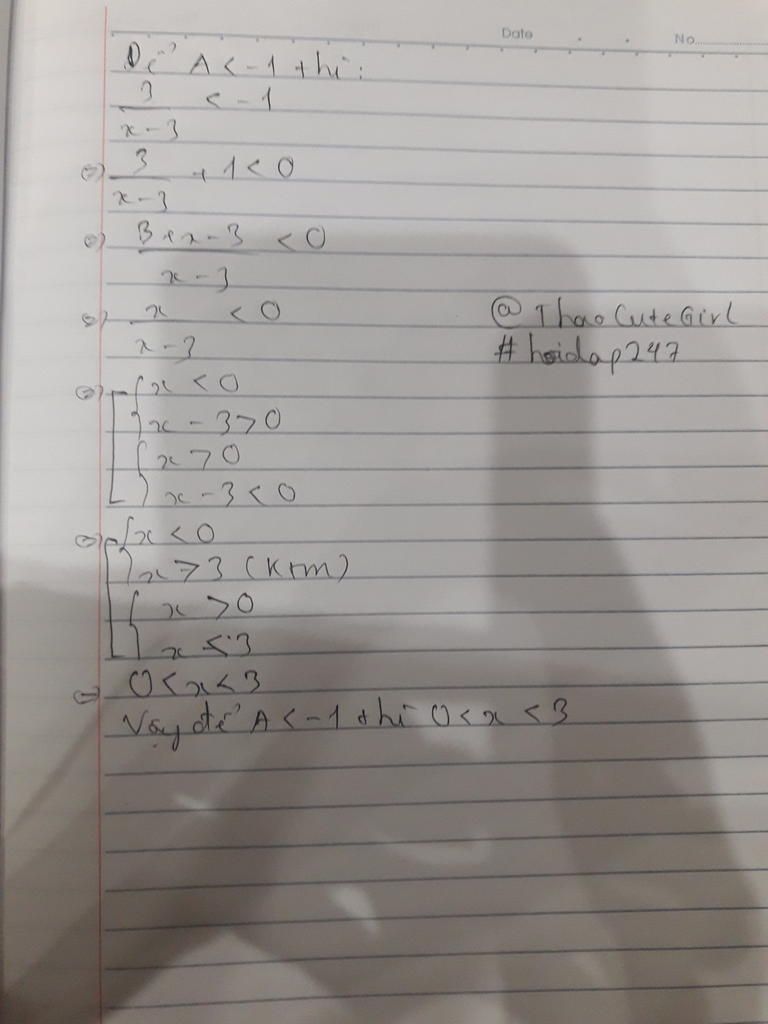 Date No.
Để A < -1 thì:
3/(x-3) < -1
⇔ 3/(x-3) + 1 < 0
⇔ (3+x-3)/(x-3) < 0
⇔ x/(x-3) < 0
@ThaoCuteGirl
#hoidap247
⇔ [ { x < 0
x - 3 > 0
{ x > 0
x - 3 < 0
⇔ [ { x < 0
x > 3 (ktm)
{ x > 0
x < 3
⇔ 0 < x < 3
Vậy để A < -1 thì 0 < x < 3